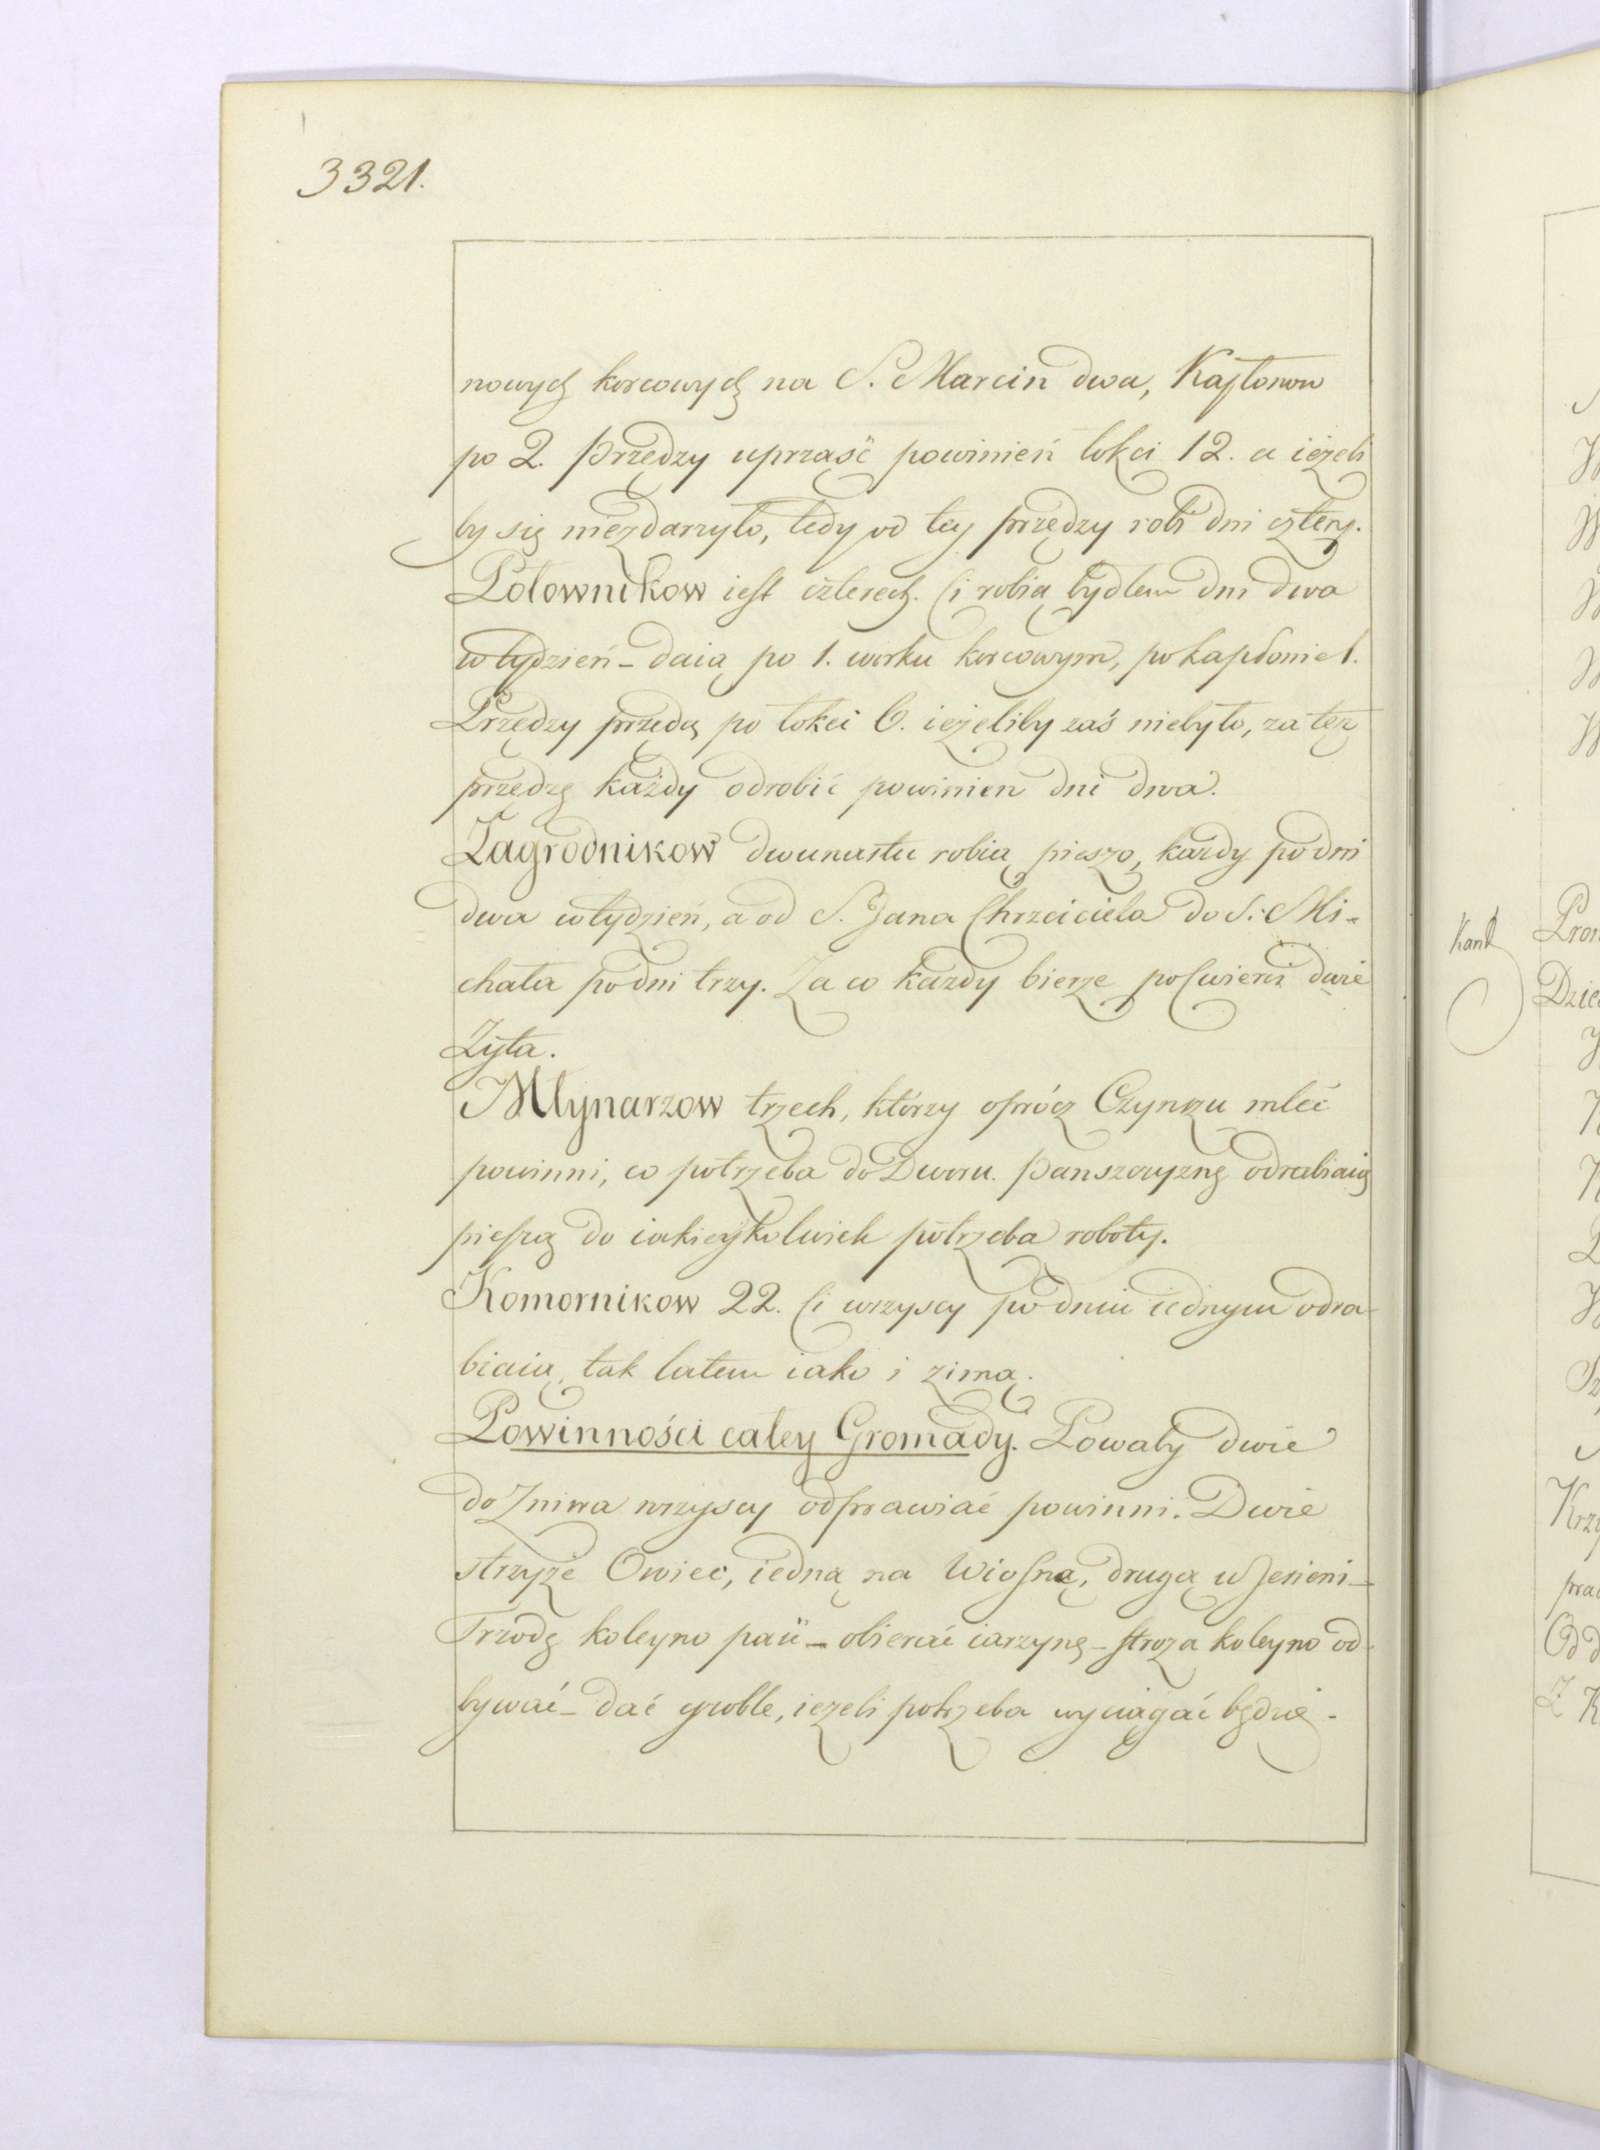 3321.
nowych korcowych na S. Marcin dwa, Kapłonow
po 2. Przędzy uprząść powinień łokci 12. a ieżeli
by się niezdarzyło, tedy od tey przędzy robi dni cztery.
Połownikow iest czterech. Ci robią bydłem dni dwa
w tydzień - daią po 1. worku korcowym, po kapłonie 1.
Przędzy przędą po łokci 6. ieżeliby zaś niebyło, za tęż
przędzę każdy odrobić powinien dni dwa.
Zagrodnikow dwunastu robią pieszo, każdy po dni
dwa w tydzień, a od S. Jana Chrzciciela do S. Mi=
chała po dni trzy. Za co każdy bierze po Cwierci dwie
Żyta.
Młynarzow trzech, którzy oprócz Czynszu mleć
powinni, co potrzeba do Dworu. Panszczyznę odrabiaią
pieszą do iakieykolwiek potrzeba roboty.
Komornikow 22. Ci wszyscy po dniu iednym odra-
biaią, tak latem iako i zimą.
Powinności całey Gromady. Powaby dwie
do Zniwa wszyscy odprawiać powinni. Dwie
strzyże Owiec, iedną na Wiosnę, drugą w Jesieni -
Trzodę koleyno paść - obierać iarzynę - stroża koleyno od-
bywać - dać groble, ieżeli potrzeba wyciągać będzie.
Kant